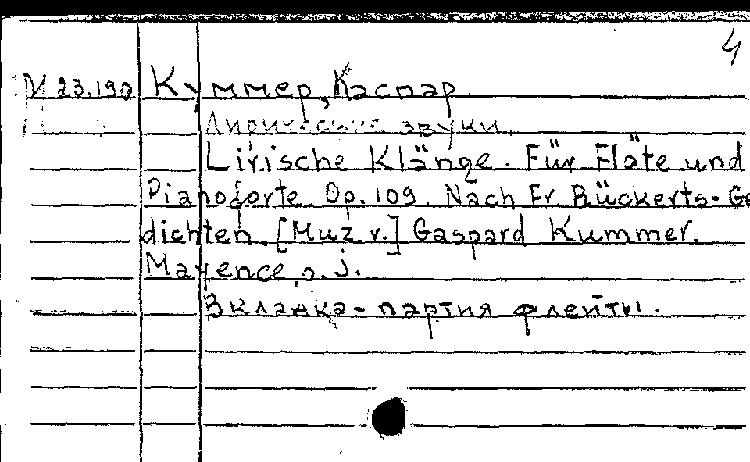 4
М 23.190 Куммер, Каспар
Лирические звуки.
Lirische Klänge. Für Flöte und
Pianoforte Op. 109. Nach Fr. Rückerts-Ge
dichten. [Muz. v.] Gaspard Kummer.
Mayence, s. j.
Вкладка - партия флейты.